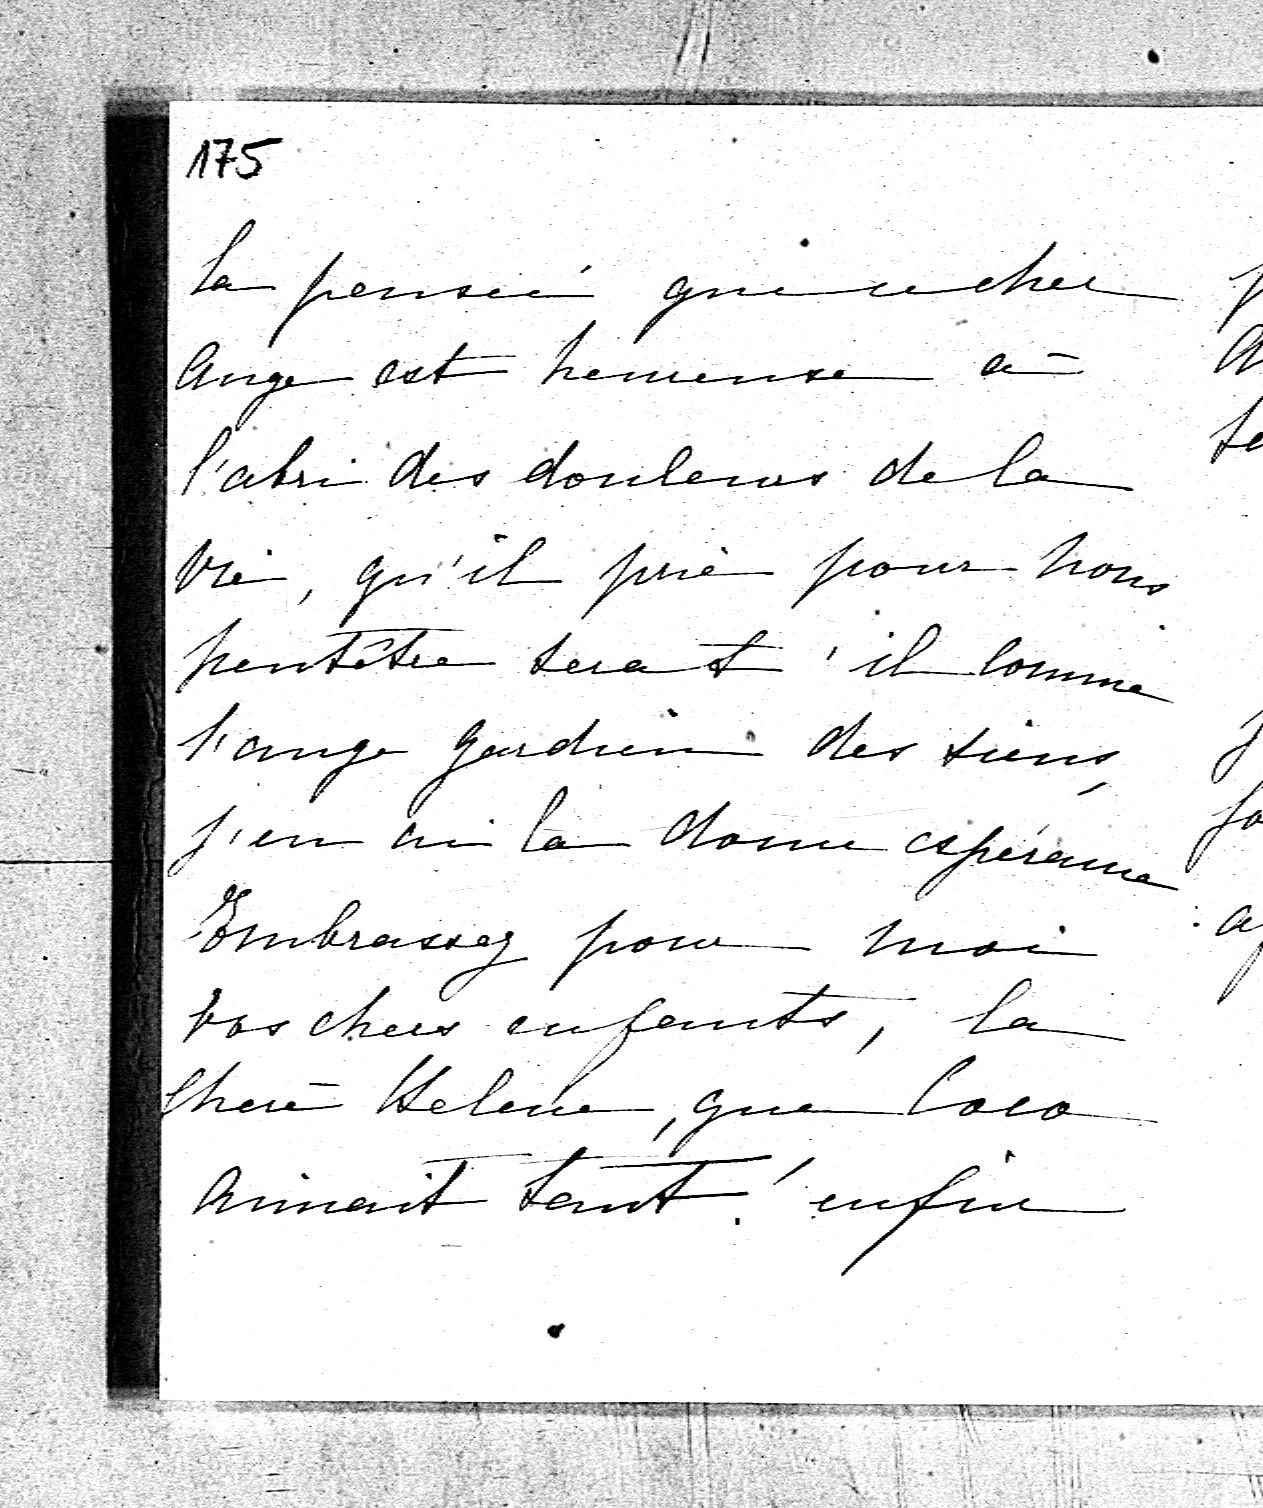 175
la pensée que ce cher
Ange est heureuse à
l'abri des douleurs de la
vie, qu'il prie pour nous
peutêtre sera t'il comme
l'ange gardien des siens,
j'en ai la douce espérance
Embrassez pour moi
vos chers enfants, la
Chère Helene, que Coco
aimait tant! enfin